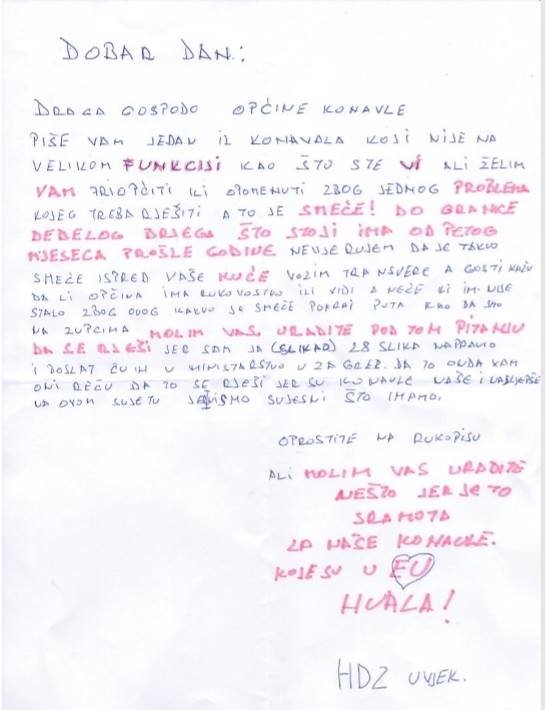 DOBAR DAN:
DRAGA GOSPODO OPĆINE KONAVLE
PIŠE VAM JEDAN IZ KONAVALA KOJI NIJE NA
VELIKOM FUNKCIJI KAO ŠTO STE VI ALI ŽELIM
VAM PRIOPČITI ILI OPOMENUTI ZBOG JEDNOG PROBLEMA
KOJEG TREBA RJEŠITI A TO JE SMEĆE! DO GRANICE
DEBELOG BRJEGA ŠTO STOJI IMA OD PETOG
MJESECA PROŠLE GODINE NEVJERUJEM DA JE TAKVO
SMEĆE ISPRED VAŠE KUĆE VOZIM TRANSVERE A GOSTI KAŽU
DA LI OPČINA IMA RUKOVOSTVO ILI VIDI A NEĆE ILI IM NIJE
STALO ZBOG OVOG KAKVO JE SMEĆE POKRAJ PUTA KAO DA SMO
NA ZUPCIMA MOLIM VAS URADITE POD TOM PITANJU
DA SE RJEŠI JER SAM JA (SLIKAO) 28 SLIKA NAPRAVIO
I POSLAT ĆU IH U MINISTARSTVO U ZAGREB. DA TO ONDA VAM
ONI REČU DA TO SE RJEŠI JER SU KONAVLE NAŠE I NAJLJEPŠE
NA OVOM SVJETU JE NISMO SVJESNI ŠTO IMAMO.
OPROSTITE NA RUKOPISU
ALI MOLIM VAS URADITE
NEŠTO JER JE TO
SRAMOTA
ZA NAŠE KONAVLE.
KOJE SU U EU
HVALA!
HDZ UVJEK.